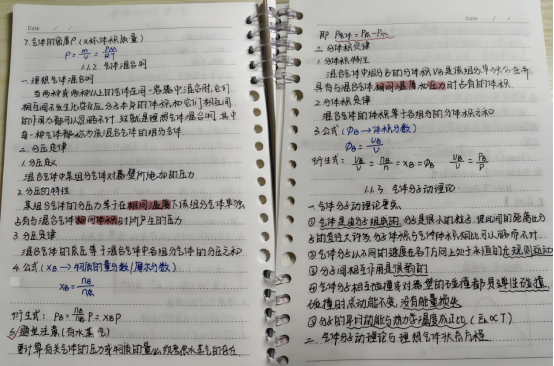 Date
7. 气体的密度ρ (又称体积质量)
ρ = m/V = PM/RT
1.1.2 气体混合物
一. 理想气体混合物
当两种或两种以上的气体在同一容器中混合时,它们
相互间不发生化学反应,分子本身的体积和它们相互间
的作用力都可以忽略不计,这就是理想气体混合物.其中
每一种气体都称为该混合气体的组分气体.
二. 分压定律
1. 分压定义
混合气体中某组分气体对器壁所施加的压力
2. 分压的特性
某组分气体的分压等于在相同温度下该组分气体单独
占有与混合气体相同体积时所产生的压力
3. 分压定律
混合气体的总压等于混合气体中各组分气体的分压之和
4. 公式 (xB → 物质的量分数/摩尔分数)
xB = nB/n总
衍生式: PB = nB/n总 P = xB P
5. 题里注意 (有水蒸气)
要计算有关气体的压力或物质的量时,必须考虑水蒸气的存在
Date
即 P气体 = P总 - P水
三. 分体积定律
1. 分体积特性
混合气体中组分B的分体积VB是该组分单独存在并
具有与混合气体相同温度和压力时占有的体积.
2. 分体积定律
混合气体的体积等于各组分的分体积之和
3. 公式 (φB → 体积分数)
φB = VB/V
衍生式: VB/V = nB/n = xB = φB VB/V = PB/P
1.1.3 气体分子动理论
一. 气体分子动理论要点
① 气体是由分子组成的,分子是很小的粒子,彼此间的距离比分
子的直径大许多,分子体积与气体体积相比可以略而不计.
② 气体分子以不同的速度在各个方向上处于永恒的无规则运动
③ 分子间相互作用是很弱的
④ 气体分子相互碰撞或对器壁的碰撞都是弹性碰撞,
碰撞时总动能不变,没有能量损失
⑤ 分子的平均动能与热力学温度成正比 (Ek ∝ T)
二. 气体分子动理论与理想气体状态方程